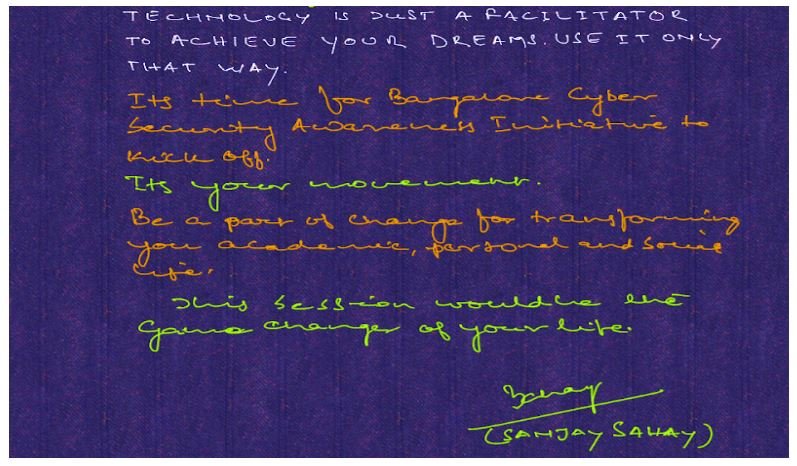 TECHNOLOGY IS JUST A FACILITATOR
TO ACHIEVE YOUR DREAMS. USE IT ONLY
THAT WAY.
Its time for Bangalore Cyber
Security Awareness Initiative to
Kick off.
Its your movement.
Be a part of change for transforming
you academic, personal and Social
life.
This Session would be the
Game changer of your life.
Sanjay
(SANJAY SAHAY)